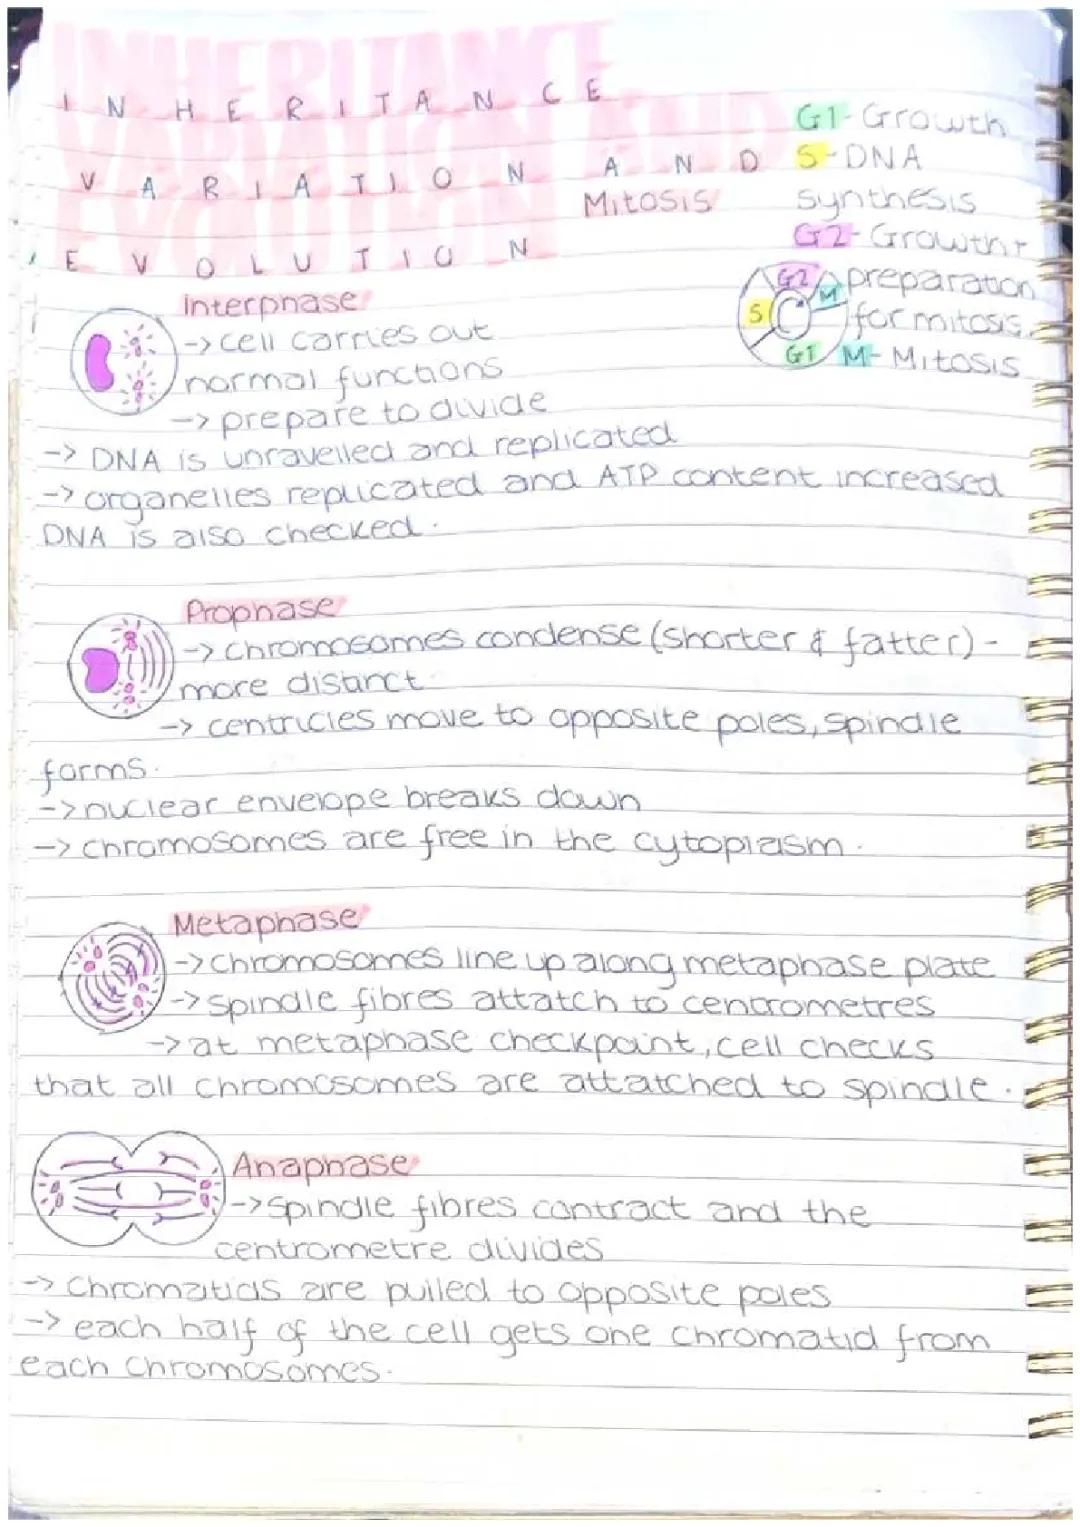 INHERITANCE
VARIATION AND
EVOLUTION
INHERITANCE
VARIATION AND
EVOLUTION
Mitosis
G1-Growth
S-DNA
synthesis
G2-Growth+
preparation
for mitosis.
M-Mitosis
G2
M
S
G1
Interphase
-> cell carries out
normal functions
-> prepare to divide
-> DNA is unravelled and replicated
-> organelles replicated and ATP content increased
DNA is also checked.
Prophase
-> chromosomes condense (shorter & fatter) -
more distinct
-> centricles move to opposite poles, spindle
forms.
-> nuclear envelope breaks down
-> chromosomes are free in the cytoplasm.
Metaphase
-> chromosomes line up along metaphase plate
-> spindle fibres attatch to centrometres
-> at metaphase checkpoint, cell checks
that all chromosomes are attatched to spindle.
Anaphase
-> Spindle fibres contract and the
centrometre divides
-> Chromatids are pulled to opposite poles
-> each half of the cell gets one chromatid from
each chromosomes.